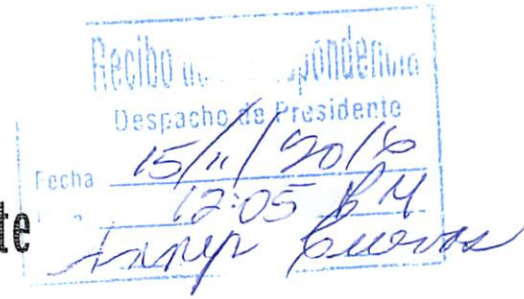 Recibo de Correspondencia
Despacho de Presidente
Fecha 15/11/2016
12:05 PM
te
Cuevas